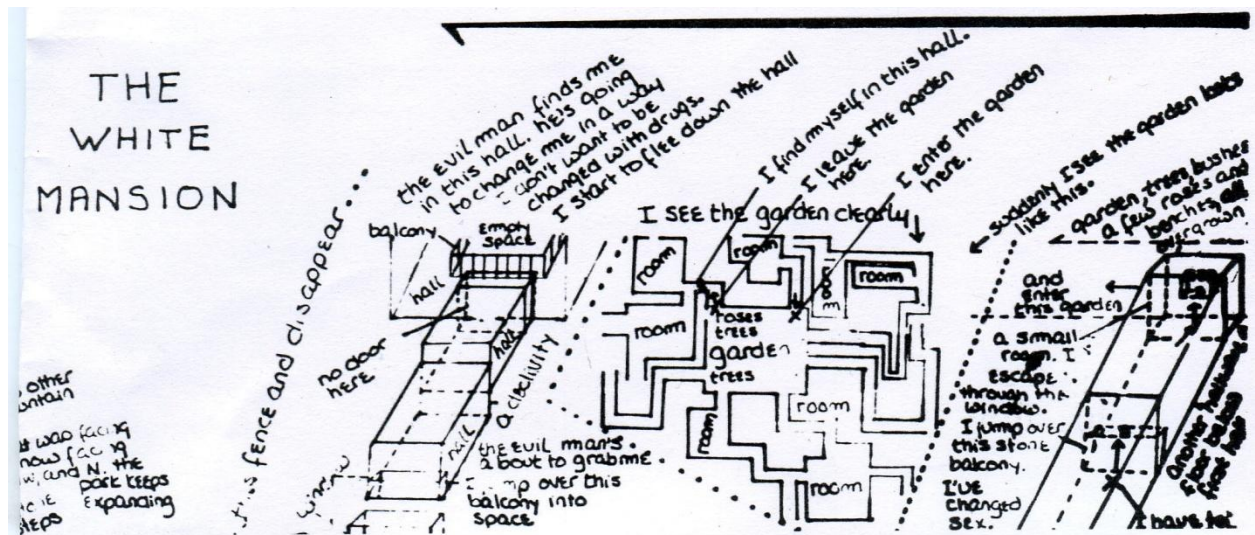 THE
WHITE
MANSION
other
was facing
now facing
and N. the
park keeps
expanding
this fence and disappear..
the evil man finds me
in this hall. he's going
to change me in a way
I don't want to be
changed with drugs.
I start to flee down the hall
balcony
empty
space
hall
hall
no door
here
a declivity
hall
window
the evil man's
about to grab me.
I jump over this
balcony into
space
I find myself in this hall.
I leave the garden
here.
I enter the garden
here.
I see the garden clearly
room
room
room
room
room
roses
trees
garden
trees
room
room
room
suddenly I see the garden looks
like this.
garden, trees, bushes
a few roses and
benches, all
overgrown
and
enter
this garden
a small
room. I
escape
through the
window.
I jump over
this stone
balcony.
I've
changed
sex.
another hallway
flat
I have to